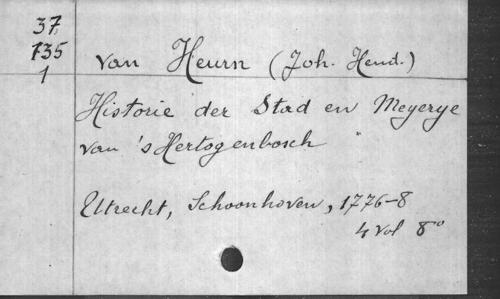 37
735
1
van Heurn (Joh. Hend.)
Historie der Stad en Meyerye
van 's Hertogenbosch
Utrecht, Schoonhoven, 1776-8
4 vol 8°